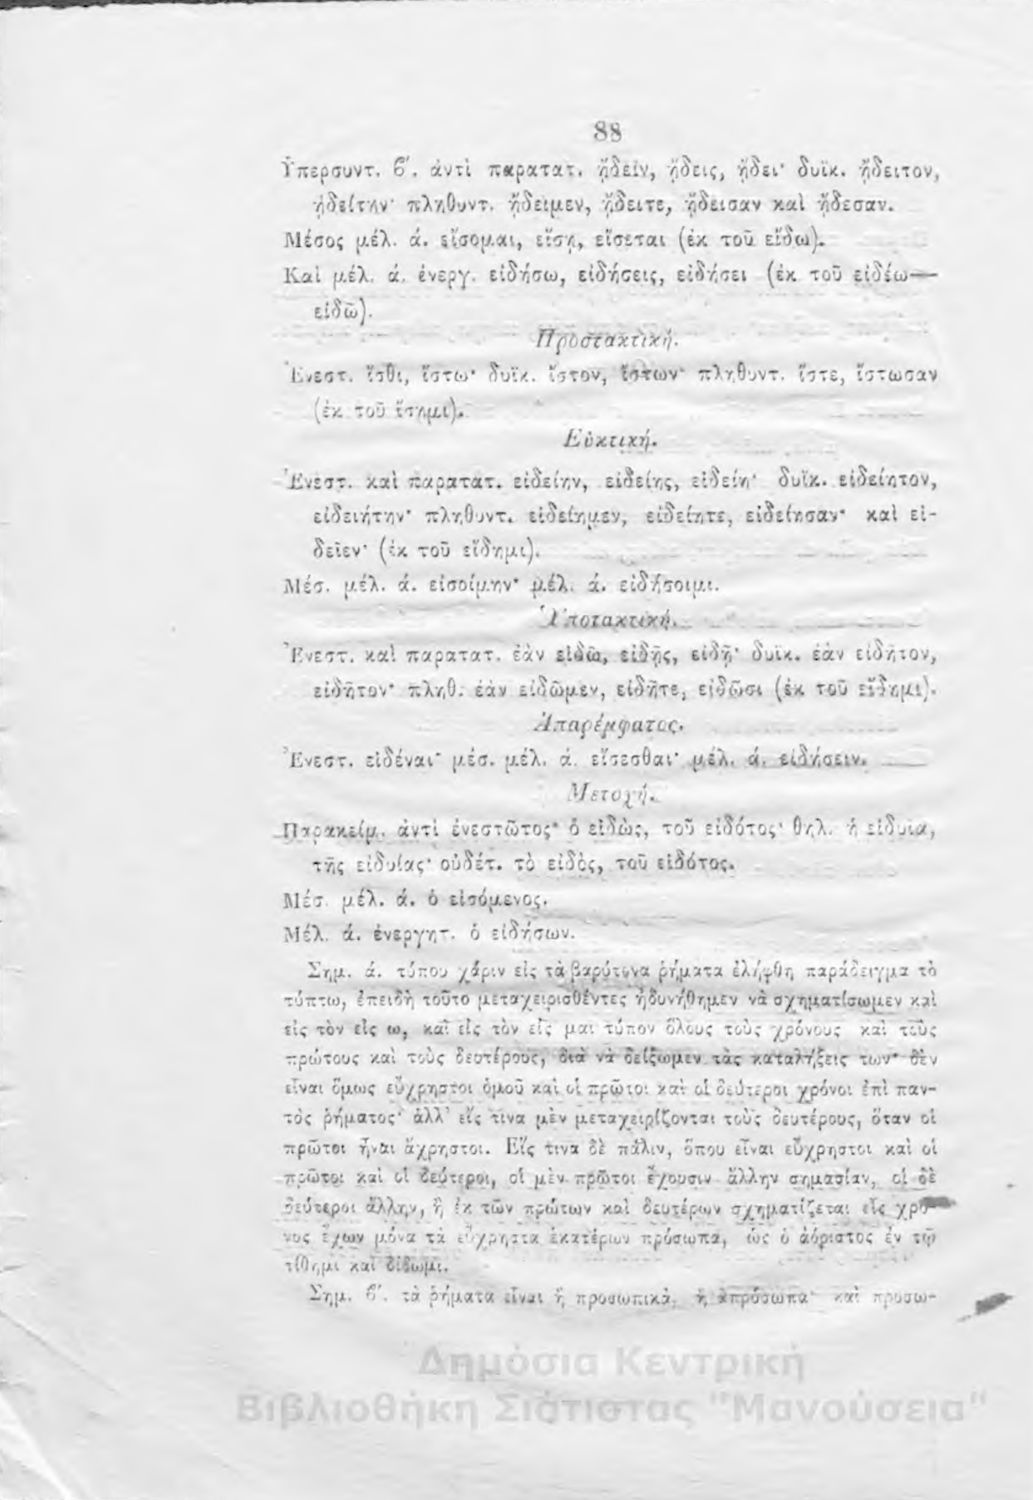 88
Ὑπερσυντ. ϐ′. ἀντὶ παρατατ. ᾔδειν, ᾔδεις, ᾔδει· δυϊκ. ᾔδειτον,
ᾐδείτην· πληθυντ. ᾔδειμεν, ᾔδειτε, ᾔδεισαν καὶ ᾔδεσαν.
Μέσος μέλ. ά. εἴσομαι, εἴσῃ, εἴσεται (ἐκ τοῦ εἴδω).
Καὶ μέλ. ά. ἐνεργ. εἰδήσω, εἰδήσεις, εἰδήσει (ἐκ τοῦ εἰδέω—
εἰδῶ).
Προστακτική.
Ἐνεστ. ἴσθι, ἴστω· δυϊκ. ἴστον, ἴστων· πληθυντ. ἴστε, ἴστωσαν
(ἐκ τοῦ ἴσημι).
Εὐκτική.
Ἐνεστ. καὶ παρατατ. εἰδείην, εἰδείης, εἰδείη· δυϊκ. εἰδείητον,
εἰδειήτην· πληθυντ. εἰδείημεν, εἰδείητε, εἰδείησαν· καὶ εἰ-
δεῖεν· (ἐκ τοῦ εἴδημι).
Μέσ. μέλ. ά. εἰσοίμην· μέλ. ά. εἰδήσοιμι.
Ὑποτακτική.
Ἐνεστ. καὶ παρατατ. ἐὰν εἰδῶ, εἰδῇς, εἰδῇ· δυϊκ. ἐὰν εἰδῆτον,
εἰδῆτον· πληθ. ἐὰν εἰδῶμεν, εἰδῆτε, εἰδῶσι (ἐκ τοῦ εἴδημι).
Ἀπαρέμφατος.
Ἐνεστ. εἰδέναι· μέσ. μέλ. ά. εἴσεσθαι· μέλ. ά. εἰδήσειν.
Μετοχή.
Παρακείμ. ἀντὶ ἐνεστῶτος· ὁ εἰδὼς, τοῦ εἰδότος· θηλ. ἡ εἰδυῖα,
τῆς εἰδυίας· οὐδέτ. τὸ εἰδὸς, τοῦ εἰδότος.
Μέσ. μέλ. ά. ὁ εἰσόμενος.
Μέλ. ά. ἐνεργητ. ὁ εἰδήσων.
Σημ. ά. τύπου χάριν εἰς τὰ βαρύτονα ῥήματα ἐλήφθη παράδειγμα τὸ
τύπτω, ἐπειδὴ τοῦτο μεταχειρισθέντες ἠδυνήθημεν νὰ σχηματίσωμεν καὶ
εἰς τὸν εἰς ω, καὶ εἰς τὸν εἰς μαι τύπον ὅλους τοὺς χρόνους καὶ τοὺς
πρώτους καὶ τοὺς δευτέρους, διὰ νὰ δείξωμεν τὰς καταλήξεις των· δὲν
εἶναι ὅμως εὔχρηστοι ὁμοῦ καὶ οἱ πρῶτοι καὶ οἱ δεύτεροι χρόνοι ἐπὶ παν-
τὸς ῥήματος· ἀλλ᾽ εἴς τινα μὲν μεταχειρίζονται τοὺς δευτέρους, ὅταν οἱ
πρῶτοι ἦναι ἄχρηστοι. Εἴς τινα δὲ πάλιν, ὅπου εἶναι εὔχρηστοι καὶ οἱ
πρῶτοι καὶ οἱ δεύτεροι, οἱ μὲν πρῶτοι ἔχουσιν ἄλλην σημασίαν, οἱ δὲ
δεύτεροι ἄλλην, ἢ ἐκ τῶν πρώτων καὶ δευτέρων σχηματίζεται εἷς χρό-
νος ἔχων μόνα τὰ εὔχρηστα ἑκατέρων πρόσωπα, ὡς ὁ ἀόριστος ἐν τῷ
τίθημι καὶ δίδωμι.
Σημ. ϐ′. τὰ ῥήματα εἶναι ἢ προσωπικὰ, ἢ ἀπρόσωπα· καὶ προσω-
Δημόσια Κεντρική
Βιβλιοθήκη Σιάτιστας "Μανούσεια"